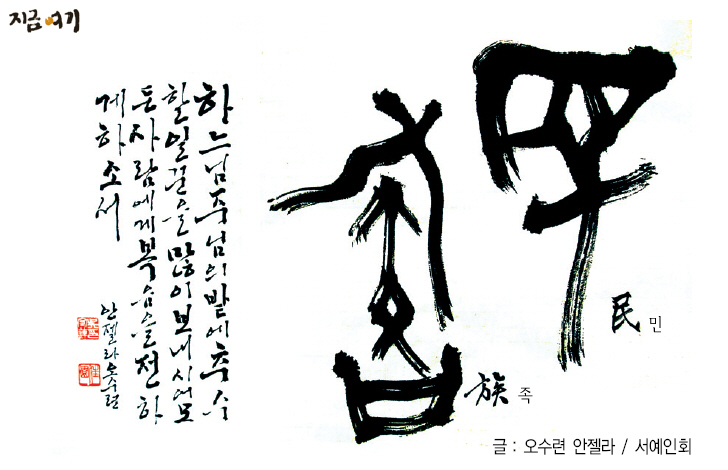 지금여기
民 민
族 족
하느님 주님의 밭에 추수
할 일꾼을 많이 보내시어 모
든 사람에게 복음을 전하
게 하소서
안젤라 오수련
글 : 오수련 안젤라 / 서예인회